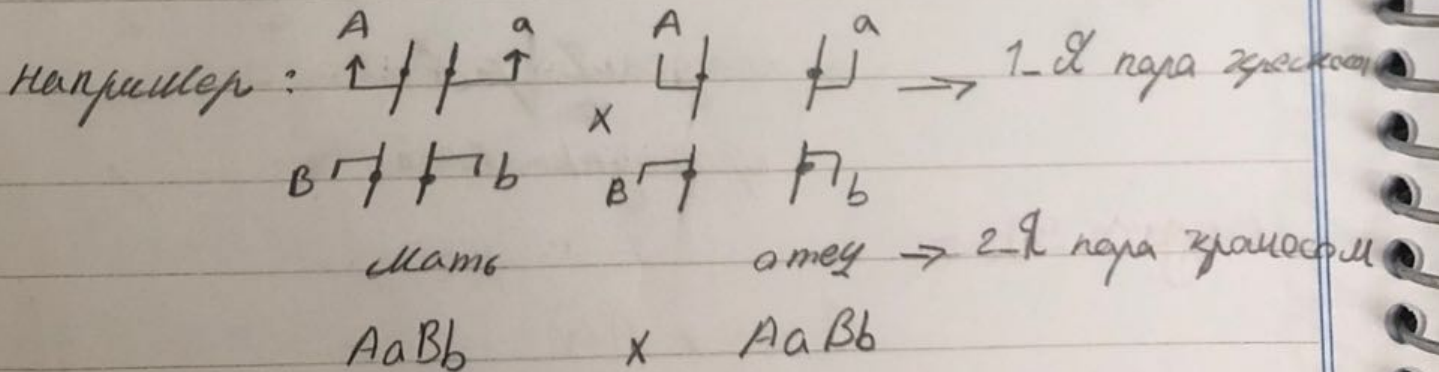 A a A a
например : х → 1-я пара хромосом
B b B b
мать отец → 2-я пара хромосом
AaBb х AaBb